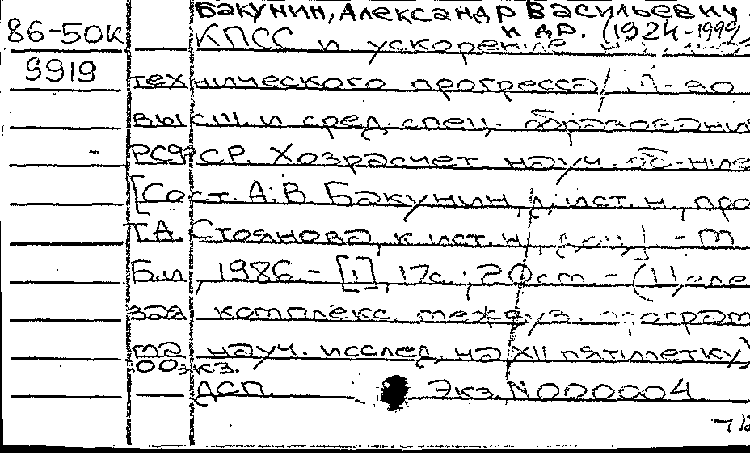 Бакунин, Александр Васильевич
86-50к и др. (1924-1999)
КПСС и ускорение
9919
технического прогресса/
высш. и сред. спец. образования
РСФСР. Хозрасчет науч. об-ние
[Сост. А.В. Бакунин, д. ист. н., про
Т.А. Стоянова, к. ист. н.
Б.м., 1986. - [1], 17с.; 20 см. -
зая комплекс. межвуз. програм
ма науч. исслед. на XII пятилетку)
100 экз.
ДСП Экз. N 000004.